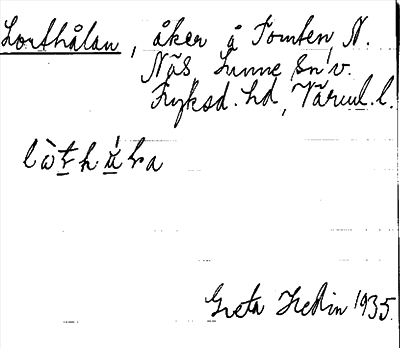 Lorthålan, åker å Tomten, N.
Näs Sunne sn v.
Fryksd. hd, Värml. l.
lòt͟há͟lra
Greta Hedin 1935.